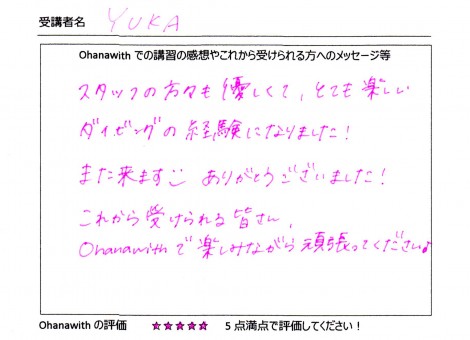 受講者名 YUKA
Ohanawith での講習の感想やこれから受けられる方へのメッセージ等
スタッフの方々も優しくて、とても楽しい
ダイビングの経験になりました！
また来ます☺ ありがとうございました！
これから受けられる皆さん、
Ohanawithで楽しみながら頑張ってください♪
Ohanawith の評価 ★★★★★ 5 点満点で評価してください！